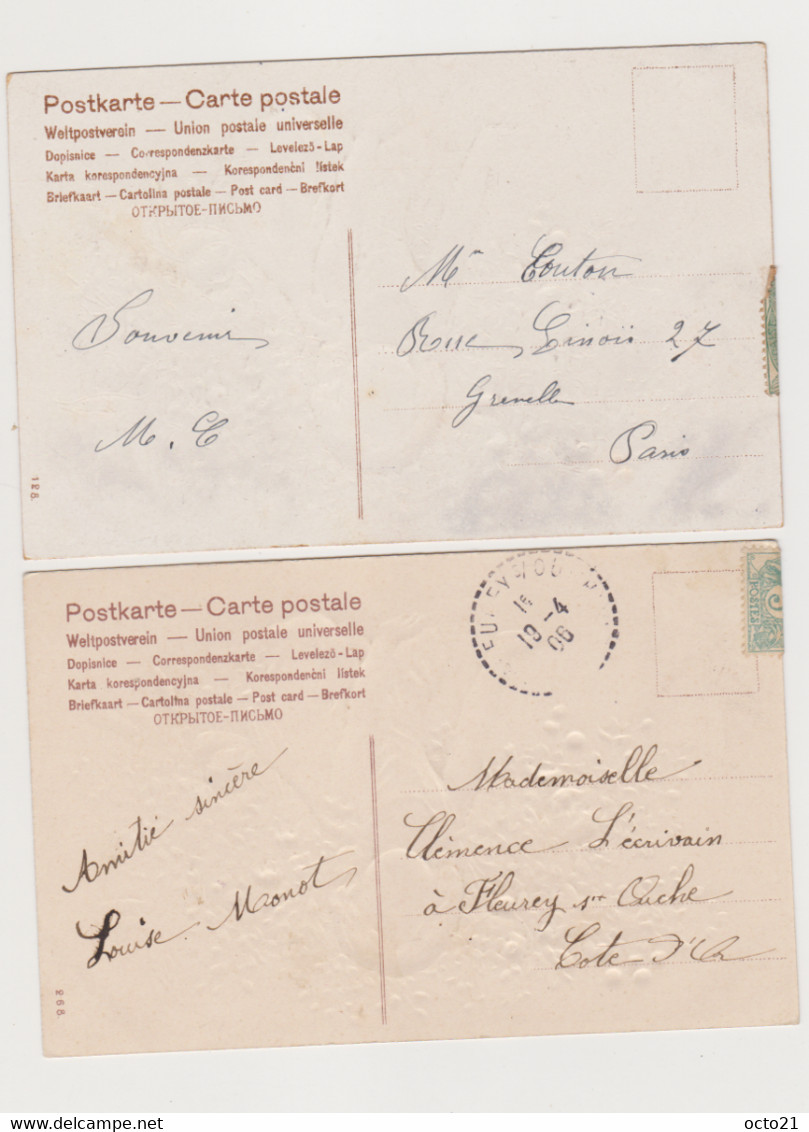 Postkarte — Carte postale
Weltpostverein — Union postale universelle
Dopisnice — Correspondenzkarte — Levelező-Lap
Karta korespondencyjna — Korespondenčni listek
Briefkaart — Cartolina postale — Post card — Brefkort
ОТКРЫТОЕ-ПИСЬМО
Souvenir
M. C
128.
Mr Couton
Rue 27
Grenelle
Paris
Postkarte — Carte postale
Weltpostverein — Union postale universelle
Dopisnice — Correspondenzkarte — Levelező-Lap
Karta korespondencyjna — Korespondenčni listek
Briefkaart — Cartolina postale — Post card — Brefkort
ОТКРЫТОЕ-ПИСЬМО
19 -4
06
POSTES
Amitié sincère
Louise Monot
268.
Mademoiselle
Clémence L'écrivain
à Fleurey sr Ouche
Cote d'Or
Delcampe.net
octo21